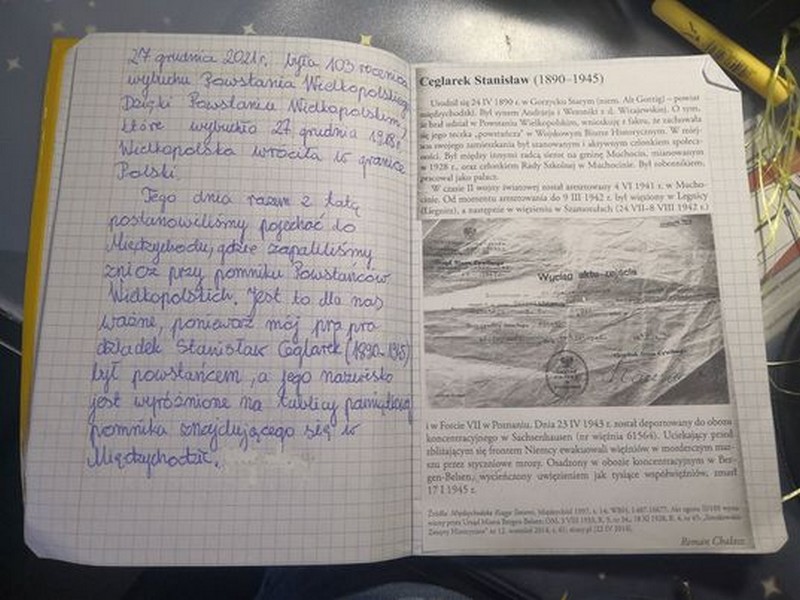 27 grudnia 2021r. była 103 rocznica
wybuchu Powstania Wielkopolskiego.
Dzięki Powstaniu Wielkopolskim,
które wybuchło 27 grudnia 1918r.
Wielkopolska wróciła w granice
Polski.
Tego dnia razem z tatą
postanowiliśmy pojechać do
Międzychodu, gdzie zapaliliśmy
znicz przy pomniku Powstańców
Wielkopolskich. Jest to dla nas
ważne, ponieważ mój pra pra
dziadek Stanisław Ceglarek (1890-1945)
był powstańcem, a jego nazwisko
jest wyróżnione na tablicy pamiątkowej
pomnika znajdującego się w
Międzychodzie.
Ceglarek Stanisław (1890–1945)
Urodził się 24 IV 1890 r. w Gorzycku Starym (niem. Alt Gortzig) – powiat
międzychodzki. Był synem Andrzeja i Weroniki z d. Witajewskiej. O tym,
że brał udział w Powstaniu Wielkopolskim, wnioskuję z faktu, że zachowała
się jego teczka „powstańcza” w Wojskowym Biurze Historycznym. W miej-
scu swojego zamieszkania był szanowanym i aktywnym członkiem społecz-
ności. Był między innymi radcą sierot na gminę Muchocin, mianowanym
w 1928 r., oraz członkiem Rady Szkolnej w Muchocinie. Był robotnikiem,
pracował jako palacz.
W czasie II wojny światowej został aresztowany 4 VI 1941 r. w Mucho-
cinie. Od momentu aresztowania do 9 III 1942 r. był więziony w Legnicy
(Liegnitz), a następnie w więzieniu w Szamotułach (24 VII–8 VIII 1942 r.)
Wyciąg aktu zejścia
i w Forcie VII w Poznaniu. Dnia 23 IV 1943 r. został deportowany do obozu
koncentracyjnego w Sachsenhausen (nr więźnia 61564). Uciekający przed
zbliżającym się frontem Niemcy ewakuowali więźniów w morderczym mar-
szu przez styczniowe mrozy. Osadzony w obozie koncentracyjnym w Ber-
gen-Belsen, wycieńczony uwięzieniem jak tysiące współwięźniów, zmarł
17 I 1945 r.
Roman Chalasz